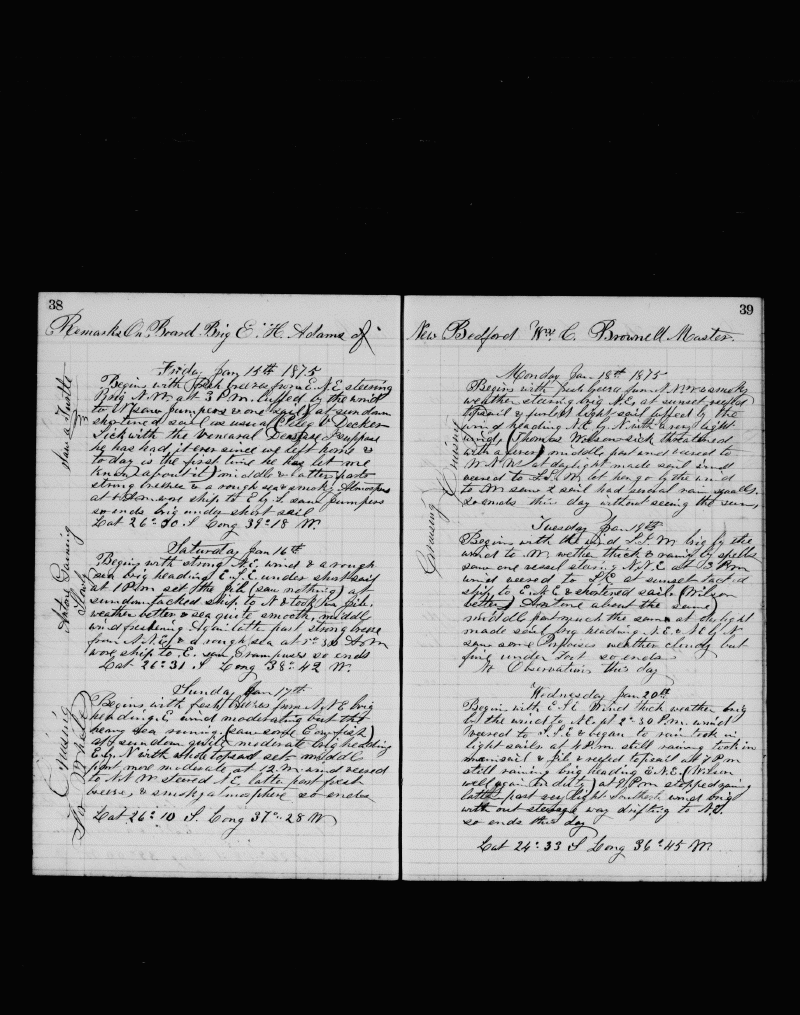 38
Remarks On Board Brig E. H. Adams of
Friday Jan 15th 1875
Begins with fresh breezes from E.N.E. steering
Brig N.W. at 3 P.M. luffed by the wind
to N (saw jumpers & one sail) at sundown
shortened sail as usual Decker
Sick with the Venearal Desease I suppose
he has had it ever since we left home &
to day is the first time he has let me
know about it) middle & latter parts
strong breeze & a rough sea & smoky Atmosphere
at wore ship to E. by S. saw jumpers
so ends brig under short sail
Lat 26° 30 S Long 39° 18 W.
Saturday Jan 16th
Begins with strong N.E. wind & a rough
sea brig heading E.S.E. under short sail
at 1 P.M. set the jib (saw nothing) at
sundown tacked ship to N & took in jib.
weather better & sea quite smooth, middle
wind freshening again latter part strong breeze
from N.N.E. & a rough sea at 5° 30 A.M.
wore ship to E. saw Grampuses so ends
Lat 26° 31 S Long 38° 42 W.
Sunday Jan 17th
Begins with fresh breezes from N.N.E. brig
heading E wind moderating but the
heavy sea runing. (saw some Cow fish)
at sundown quite moderate brig heading
E by N with whole topsail set middle
part more moderate at 12 M. wind veered
to N.N.W. Steered N.E. latter part fresh
breeze, & smoky atmosphere so ends
Lat 26° 10 S. Long 37° 28 W
saw a Turtle
Antone Fanning
Cruising
For Whale
39
New Bedford Wm C. Brownell Master
Monday Jan. 18th 1875
Begins with fresh breeze from N.N.W. & smoky
weather stearing brig N.E. at sunset reefed
topsail & furled light sail luffed by the
wind heading N.E. by N. with a very light
wind, (Thomas Wilson sick threatened
with a fever) middle part wind veered to
W.N.W. at daylight made sail wind
veered to S.S.W. let her go by the wind
to W saw a sail had several rain squalls,
so ends this day without seeing the sun,
Tuesday Jan 19th
Begins with the wind S.S.W. brig by the
wind to W. wether thick & rainy by spells
saw one vessel stearing N.N.E. at 3 P.M.
wind veered to S.E. at sunset tac'd
ship to E.N.E. & shortened sail. (Wilson
better) Antone about the same)
middle part much the same at daylight
made sail brig heading N.E. & N.E. by N.
saw some Porpoises weather cloudy but
fine under foot so ends
No Observation this day
Wednesday Jan 20th
Begins with E.S.E. Wind thick weather brig
by the wind to N.E. at 2° 30 P.M. wind
veered to S.S.E & began to rain took in
light sails at 4 P.M. still raining took in
mainsail & jib & reefed topsail at 7 P.M.
still raining brig heading E.N.E. (Wilson
well again on duty) at 9 P.M. stopped raining
latter part very light Southerly wind brig
with out steerage way drifting to N.E.
so ends this day
Lat 24° 33 S Long 36° 45 W.
Cruising
Cruising